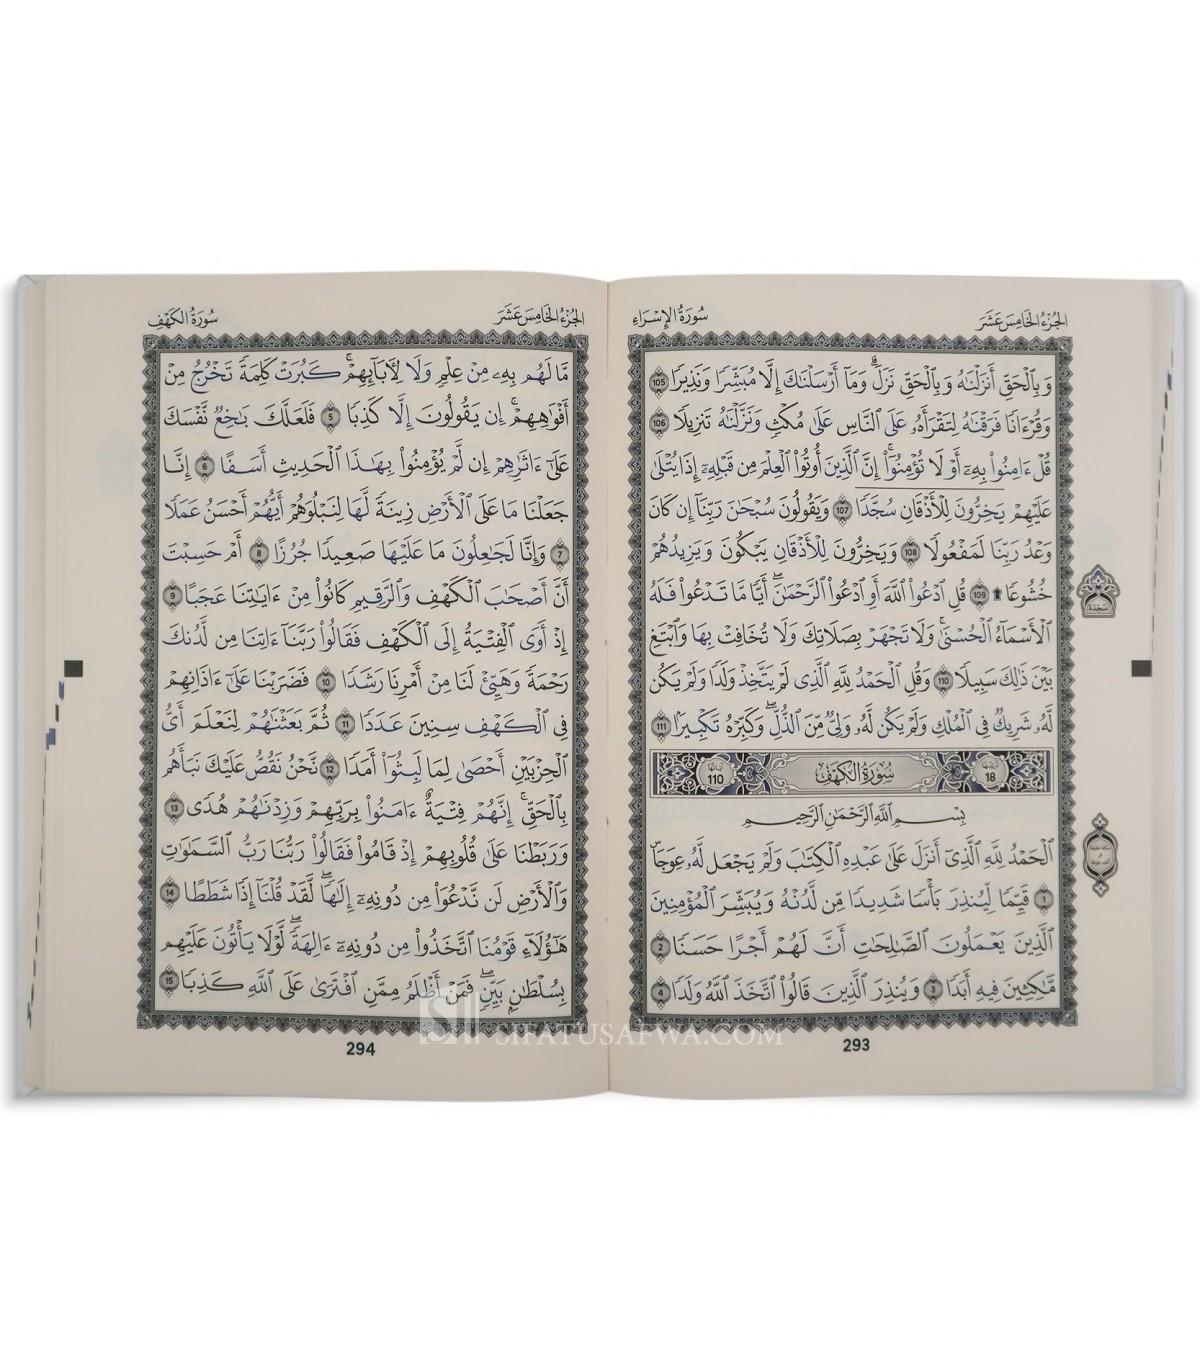 الجزء الخامس عشر
سورة الإسراء
وَبِٱلْحَقِّ أَنزَلْنَٰهُ وَبِٱلْحَقِّ نَزَلَ ۗ وَمَآ أَرْسَلْنَٰكَ إِلَّا مُبَشِّرًا وَنَذِيرًا 105
وَقُرْءَانًا فَرَقْنَٰهُ لِتَقْرَأَهُۥ عَلَى ٱلنَّاسِ عَلَىٰ مُكْثٍ وَنَزَّلْنَٰهُ تَنزِيلًا 106
قُلْ ءَامِنُوا۟ بِهِۦٓ أَوْ لَا تُؤْمِنُوٓا۟ ۚ إِنَّ ٱلَّذِينَ أُوتُوا۟ ٱلْعِلْمَ مِن قَبْلِهِۦٓ إِذَا يُتْلَىٰ
عَلَيْهِمْ يَخِرُّونَ لِلْأَذْقَانِ سُجَّدًا 107 وَيَقُولُونَ سُبْحَٰنَ رَبِّنَآ إِن كَانَ
وَعْدُ رَبِّنَا لَمَفْعُولًا 108 وَيَخِرُّونَ لِلْأَذْقَانِ يَبْكُونَ وَيَزِيدُهُمْ
خُشُوعًا ۩ 109 قُلِ ٱدْعُوا۟ ٱللَّهَ أَوِ ٱدْعُوا۟ ٱلرَّحْمَٰنَ ۖ أَيًّا مَّا تَدْعُوا۟ فَلَهُ
ٱلْأَسْمَآءُ ٱلْحُسْنَىٰ ۚ وَلَا تَجْهَرْ بِصَلَاتِكَ وَلَا تُخَافِتْ بِهَا وَٱبْتَغِ
بَيْنَ ذَٰلِكَ سَبِيلًا 110 وَقُلِ ٱلْحَمْدُ لِلَّهِ ٱلَّذِى لَمْ يَتَّخِذْ وَلَدًا وَلَمْ يَكُن
لَّهُۥ شَرِيكٌ فِى ٱلْمُلْكِ وَلَمْ يَكُن لَّهُۥ وَلِىٌّ مِّنَ ٱلذُّلِّ ۖ وَكَبِّرْهُ تَكْبِيرًۢا 111
ترتيبها 18 سورة الكهف آياتها 110
بِسْمِ ٱللَّهِ ٱلرَّحْمَٰنِ ٱلرَّحِيمِ
ٱلْحَمْدُ لِلَّهِ ٱلَّذِىٓ أَنزَلَ عَلَىٰ عَبْدِهِ ٱلْكِتَٰبَ وَلَمْ يَجْعَل لَّهُۥ عِوَجَاۜ
1 قَيِّمًا لِّيُنذِرَ بَأْسًا شَدِيدًا مِّن لَّدُنْهُ وَيُبَشِّرَ ٱلْمُؤْمِنِينَ
ٱلَّذِينَ يَعْمَلُونَ ٱلصَّٰلِحَٰتِ أَنَّ لَهُمْ أَجْرًا حَسَنًا 2
مَّٰكِثِينَ فِيهِ أَبَدًا 3 وَيُنذِرَ ٱلَّذِينَ قَالُوا۟ ٱتَّخَذَ ٱللَّهُ وَلَدًا 4
293
سجدة
الجزء الخامس عشر
سورة الكهف
مَّا لَهُم بِهِۦ مِنْ عِلْمٍ وَلَا لِءَابَآئِهِمْ ۚ كَبُرَتْ كَلِمَةً تَخْرُجُ مِنْ
أَفْوَٰهِهِمْ ۚ إِن يَقُولُونَ إِلَّا كَذِبًا 5 فَلَعَلَّكَ بَٰخِعٌ نَّفْسَكَ
عَلَىٰٓ ءَاثَٰرِهِمْ إِن لَّمْ يُؤْمِنُوا۟ بِهَٰذَا ٱلْحَدِيثِ أَسَفًا 6 إِنَّا
جَعَلْنَا مَا عَلَى ٱلْأَرْضِ زِينَةً لَّهَا لِنَبْلُوَهُمْ أَيُّهُمْ أَحْسَنُ عَمَلًا
7 وَإِنَّا لَجَٰعِلُونَ مَا عَلَيْهَا صَعِيدًا جُرُزًا 8 أَمْ حَسِبْتَ
أَنَّ أَصْحَٰبَ ٱلْكَهْفِ وَٱلرَّقِيمِ كَانُوا۟ مِنْ ءَايَٰتِنَا عَجَبًا 9
إِذْ أَوَى ٱلْفِتْيَةُ إِلَى ٱلْكَهْفِ فَقَالُوا۟ رَبَّنَآ ءَاتِنَا مِن لَّدُنكَ
رَحْمَةً وَهَيِّئْ لَنَا مِنْ أَمْرِنَا رَشَدًا 10 فَضَرَبْنَا عَلَىٰٓ ءَاذَانِهِمْ
فِى ٱلْكَهْفِ سِنِينَ عَدَدًا 11 ثُمَّ بَعَثْنَٰهُمْ لِنَعْلَمَ أَىُّ
ٱلْحِزْبَيْنِ أَحْصَىٰ لِمَا لَبِثُوٓا۟ أَمَدًا 12 نَّحْنُ نَقُصُّ عَلَيْكَ نَبَأَهُم
بِٱلْحَقِّ ۚ إِنَّهُمْ فِتْيَةٌ ءَامَنُوا۟ بِرَبِّهِمْ وَزِدْنَٰهُمْ هُدًى 13
وَرَبَطْنَا عَلَىٰ قُلُوبِهِمْ إِذْ قَامُوا۟ فَقَالُوا۟ رَبُّنَا رَبُّ ٱلسَّمَٰوَٰتِ
وَٱلْأَرْضِ لَن نَّدْعُوَا۟ مِن دُونِهِۦٓ إِلَٰهًا ۖ لَّقَدْ قُلْنَآ إِذًا شَطَطًا 14
هَٰٓؤُلَآءِ قَوْمُنَا ٱتَّخَذُوا۟ مِن دُونِهِۦٓ ءَالِهَةً ۖ لَّوْلَا يَأْتُونَ عَلَيْهِم
بِسُلْطَٰنٍۭ بَيِّنٍ ۖ فَمَنْ أَظْلَمُ مِمَّنِ ٱفْتَرَىٰ عَلَى ٱللَّهِ كَذِبًا 15
294
SIFATUSAFWA.COM